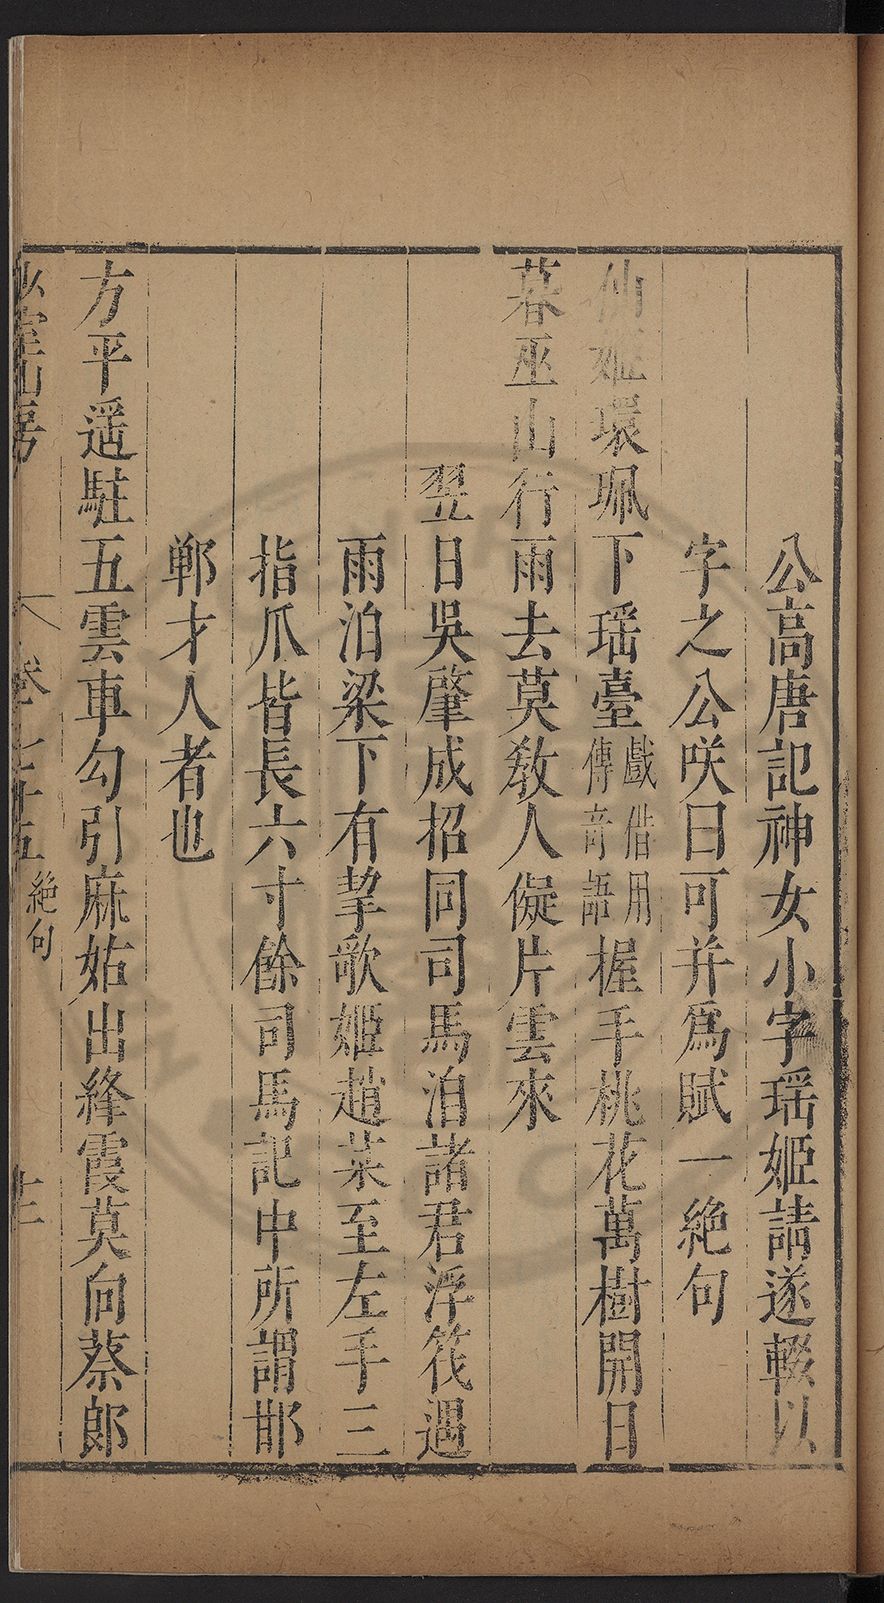 公高唐記神女小字瑶姬請遂輟以
字之公咲曰可并爲賦一絶句
仙姬環珮下瑶臺戲借用傳奇語握手桃花萬樹開日
暮巫山行雨去莫敎人儗片雲來
翌日吳肇成招同司馬泊諸君浮筏遇
雨泊梁下有挈歌姬趙某至左手三
指爪皆長六寸餘司馬記中所謂邯
鄲才人者也
方平遥駐五雲車勾引麻姑出絳霞莫向蔡郎
山房
卷七十五
絶句